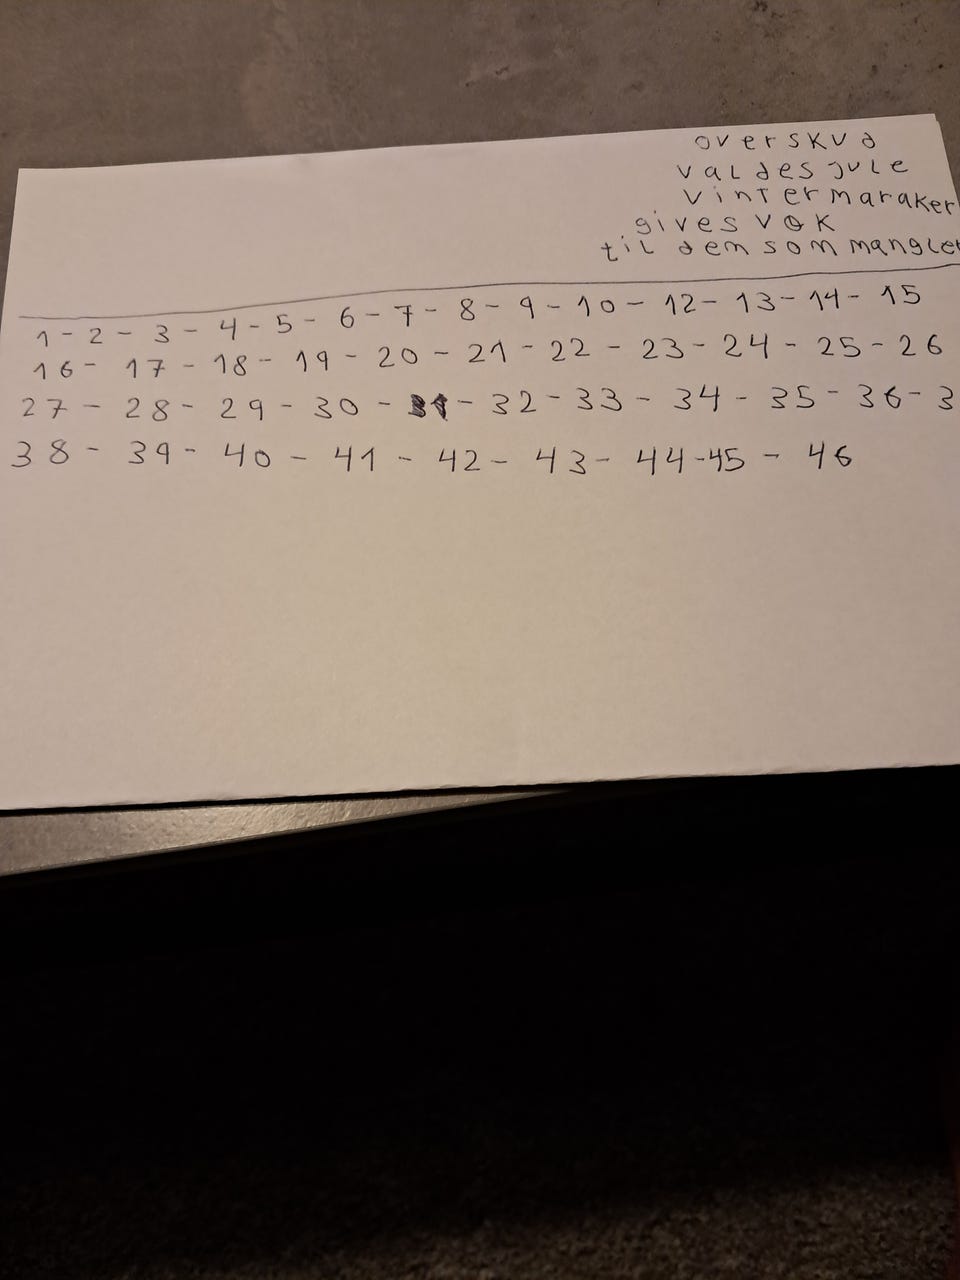 overskud
valdes jule
vintermaraker
gives vok
til dem som mangler
1 - 2 - 3 - 4 - 5 - 6 - 7 - 8 - 9 - 10 - 12 - 13 - 14 - 15
16 - 17 - 18 - 19 - 20 - 21 - 22 - 23 - 24 - 25 - 26
27 - 28 - 29 - 30 - 31 - 32 - 33 - 34 - 35 - 36 - 3
38 - 39 - 40 - 41 - 42 - 43 - 44 - 45 - 46